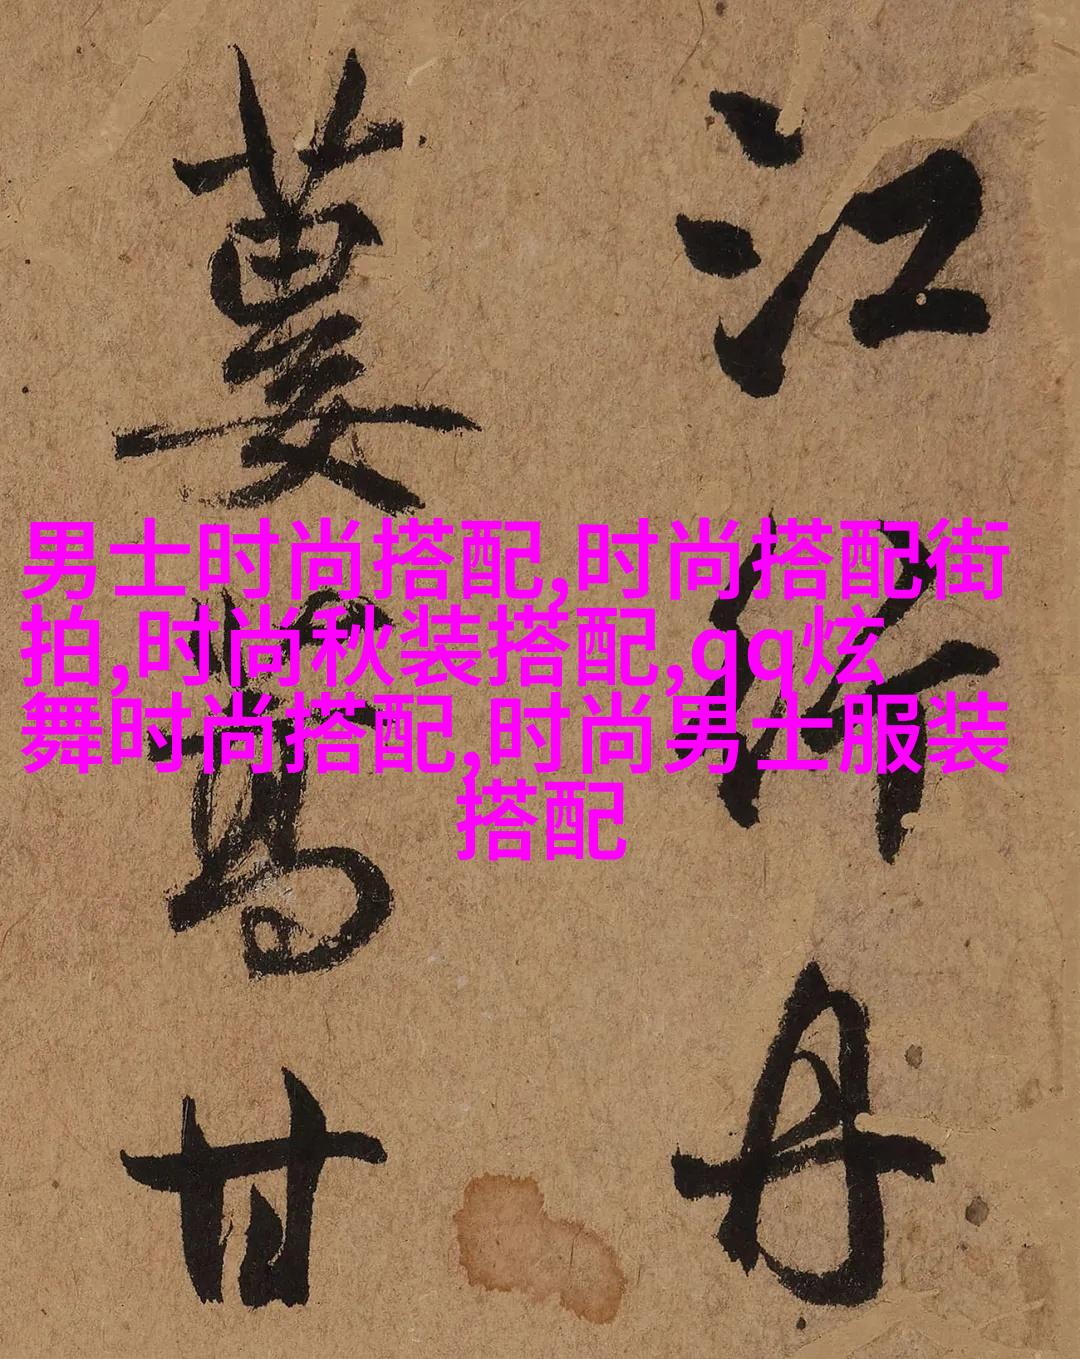 男士时尚搭配,时尚搭配街
拍,时尚秋装搭配,qq炫
舞时尚搭配,时尚男士服装
搭配
江丹
甘